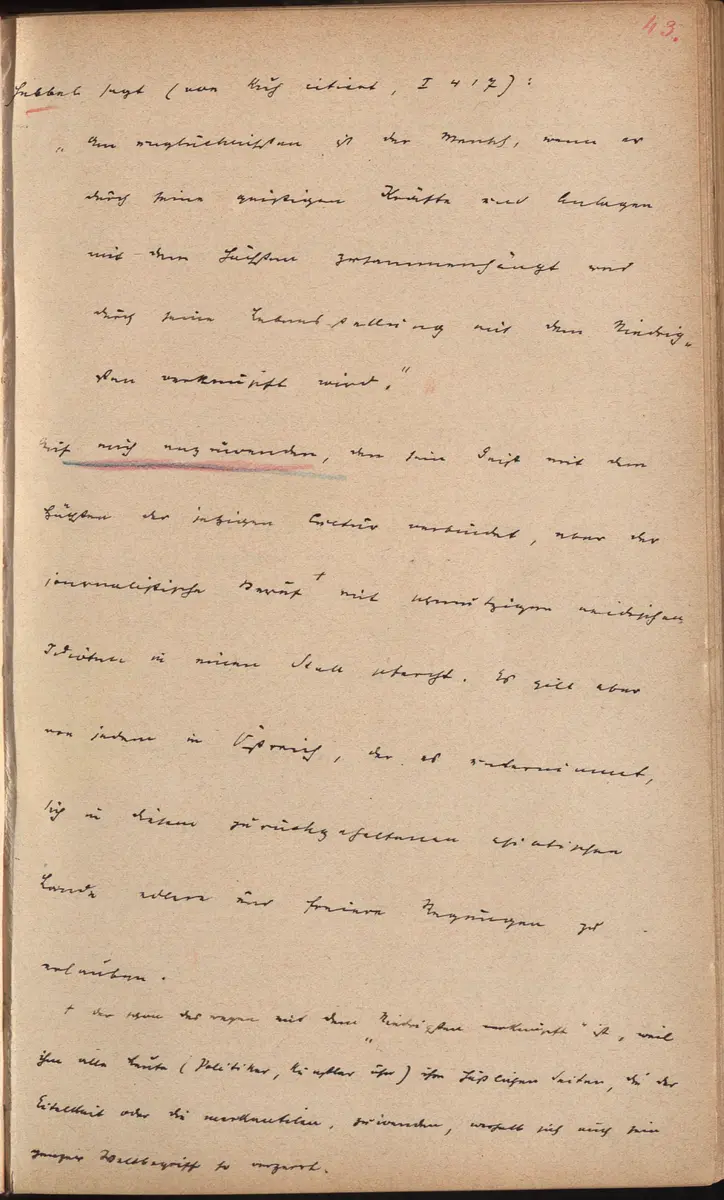 43.
Hebbel sagt (von Kuh citiert, I 417):
„Am unglücklichsten ist der Mensch, wenn er
durch seine geistigen Kräfte und Anlagen
mit dem Höchsten zusammenhängt und
durch seine Lebensstellung mit dem Niedrig-
sten verknüpft wird.“
Auf mich anzuwenden, den sein Geist mit dem
Höchsten der jetzigen Cultur verbindet, aber der
journalistische Beruf + mit schmutzigen neidischen
Idioten in einen Stall pfercht. Es gilt aber
von jedem in Östreich, der es unternimmt,
sich in diesem zurückgehaltenen asiatischen
Lande edlere und freiere Regungen zu
erlauben.
+ der schon deswegen mit dem „Niedrigsten verknüpft“ ist, weil
ihm alle Leute (Politiker, Künstler usw) ihre häßlichen Seiten, die der
Eitelkeit oder die merkantilen, zuwenden, weshalb sich auch sein
ganzer Weltbegriff so verzerrt.